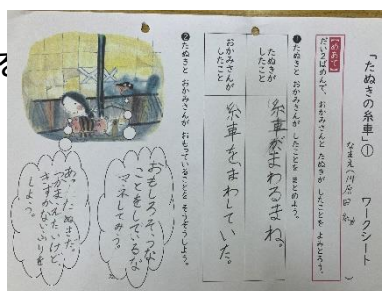 「たぬきの糸車」① ワークシート
なまえ
【めあて】
だい2ばめんで、おかみさんと たぬきが したことを よみとろう。
❶たぬきと おかみさんが したことを まとめよう。
たぬきが
したこと
糸車がまわるまね。
おかみさんが
したこと
糸車をまわしていた。
❷たぬきと おかみさんが おもっていることを そうぞうしよう。
おもしろそうな
ことをしているな
マネしてみよう。
あっ、たぬきだ。
つかまえたいけど、
きずかないふりを
しよう。